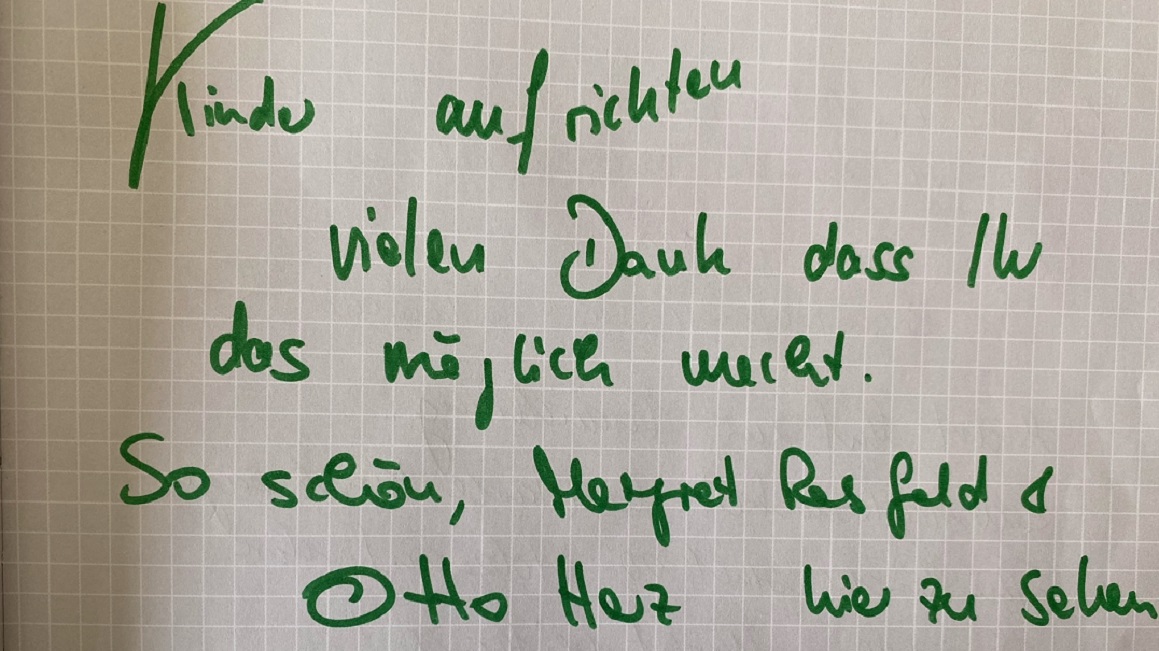 Kinder aufrichten
vielen Dank dass Ihr
das möglich macht.
So schön, Margret Rasfeld &
Otto Herz hier zu sehen